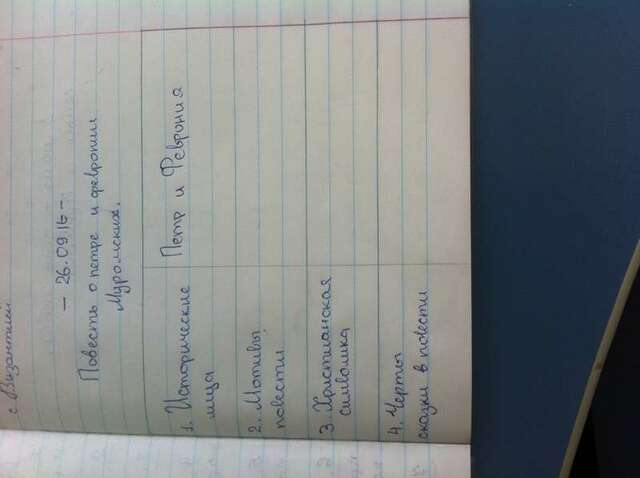 с Византией
— 26.09.16 —
Повесть о петре и февронии
Муромских.
1. Исторические
лица
Петр и Феврония
2. Мотивы
повести
3. Христианская
символика
4. Черты
сказки в повести